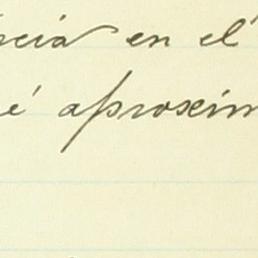 ncia en el
é aproxim